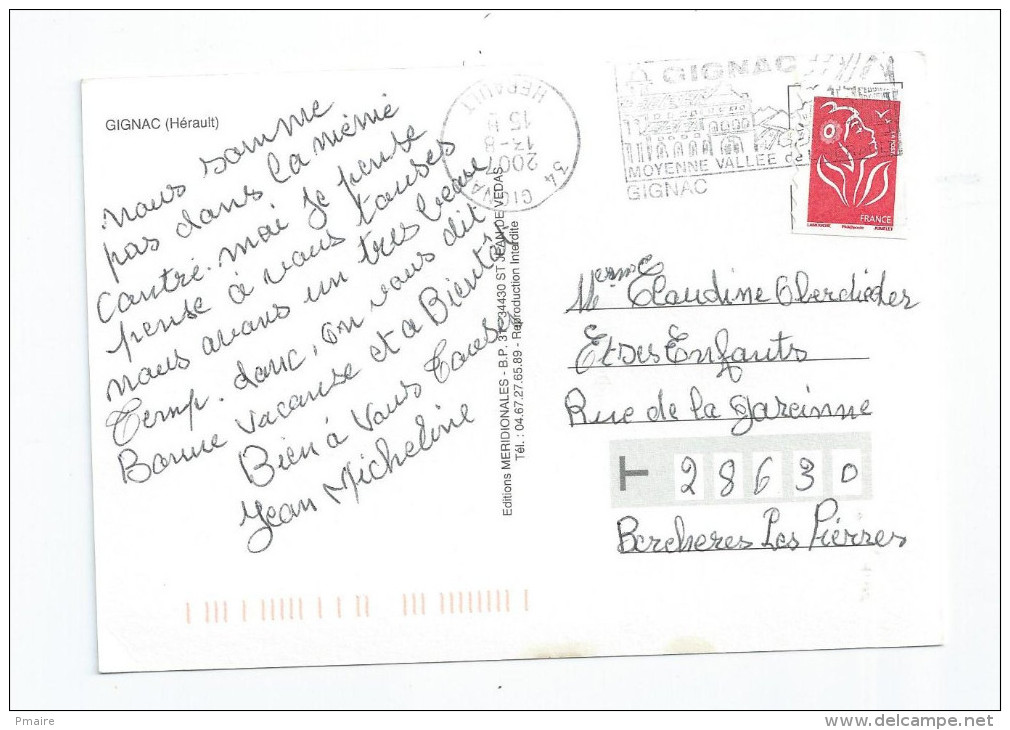 GIGNAC (Hérault)
nous somme
pas dans la même
contré. moi je pense
pense à vous touses
nous avons un tres bease
Temp. donc, on vous dit
Bonne vacanse et a Bientôt
Bien à vous Touse
Jean Micheline
Editions MERIDIONALES - B.P. 31 - 34430 ST JEAN DE VEDAS
Tél. : 04.67.27.65.89 - Reproduction Interdite
34 GIGNAC
HERAULT
15 H
13-8
2007
GIGNAC
MOYENNE VALLEE de
GIGNAC
LA POSTE
FRANCE
Mme Claudine Oberdieder
Et Des Enfants
Rue de la Gareinne
28630
Bercheres Les Pierres
Pmaire
delcampe.net